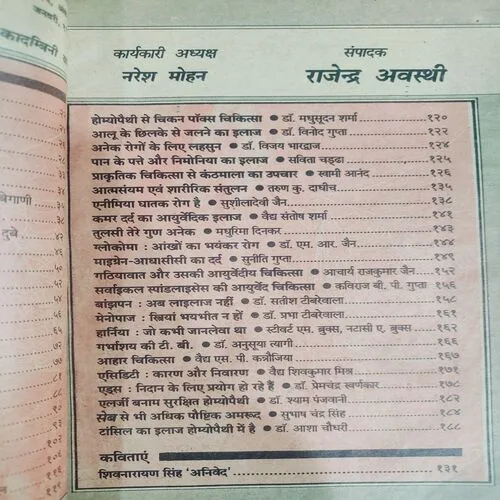 जनवरी,
कादम्बिनी
कार्यकारी अध्यक्ष
नरेश मोहन
संपादक
राजेन्द्र अवस्थी
होम्योपैथी से चिकन पॉक्स चिकित्सा ● डॉ. मधुसूदन शर्मा ........ १२०
आलू के छिलके से जलने का इलाज ● डॉ. विनोद गुप्ता ........ १२२
अनेक रोगों के लिए लहसुन ● डॉ. विजय भारद्वाज ........ १२४
पान के पत्ते और निमोनिया का इलाज ● सविता चड्ढा ........ १२५
प्राकृतिक चिकित्सा से कंठमाला का उपचार ● स्वामी आनंद ........ १२६
आत्मसंयम एवं शारीरिक संतुलन ● तरुण कु. दाधीच ........ १३५
एनीमिया घातक रोग है ● सुशीलादेवी जैन ........ १३८
कमर दर्द का आयुर्वेदिक इलाज ● वैद्य संतोष शर्मा ........ १४१
तुलसी तेरे गुण अनेक ● मधुरिमा दिनकर ........ १४३
ग्लोकोमा : आंखों का भयंकर रोग ● डॉ. एम. आर. जैन ........ १४४
माइग्रेन-आधासीसी का दर्द ● सुनीति गुप्ता ........ १४९
गठियावात और उसकी आयुर्वेदीय चिकित्सा ● आचार्य राजकुमार जैन ........ १५२
सर्वाइकल स्पांडलाइसेस की आयुर्वेद चिकित्सा ● कविराज बी. पी. गुप्ता ........ १५६
बांझपन : अब लाइलाज नहीं ● डॉ. सतीश टीबरेवाला ........ १५८
मेनोपाज : स्त्रियां भयभीत न हों ● डॉ. प्रभा टीबरेवाला ........ १६१
हार्निया : जो कभी जानलेवा था ● स्टीवर्ट एम. ब्रुक्स, नटासी ए. ब्रुक्स ........ १६२
गर्भाशय की टी. बी. ● डॉ. अनुसूया त्यागी ........ १६६
आहार चिकित्सा ● वैद्य एस. पी. कन्नौजिया ........ १६७
एसिडिटी : कारण और निवारण ● वैद्य शिवकुमार मिश्र ........ १७१
एड्स : निदान के लिए प्रयोग हो रहे हैं ● डॉ. प्रेमचंद्र स्वर्णकार ........ १७८
एलर्जी बनाम सुरक्षित होम्योपैथी ● डॉ. श्याम पंजवानी ........ १८२
सेब से भी अधिक पौष्टिक अमरूद ● सुभाष चंद्र सिंह ........ १८४
टांसिल का इलाज होम्योपैथी में है ● डॉ. आशा चौधरी ........ १८८
कविताएं
शिवनारायण सिंह 'अनिवेद' ........ १३१